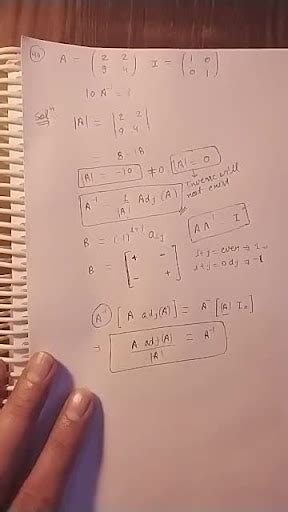 A = ( 2 2 9 4 ) I = ( 1 0 0 1 )
10 A⁻ = ?
Solⁿ |A| = | 2 2 9 4 |
= 8 - 18
|A| = -10 ≠ 0 |A| = 0
Inverse will not exist
A⁻¹ 1/|A| Adj (A)
A A⁻¹ I
B = (-1)^(i+j) aij
i+j = even → 1
i+j = odd → -1
B = [ + - - + ]
A⁻¹ [ A adj(A) ] = A⁻ [ |A| In ]
→ A adj(A) / |A| = A⁻¹